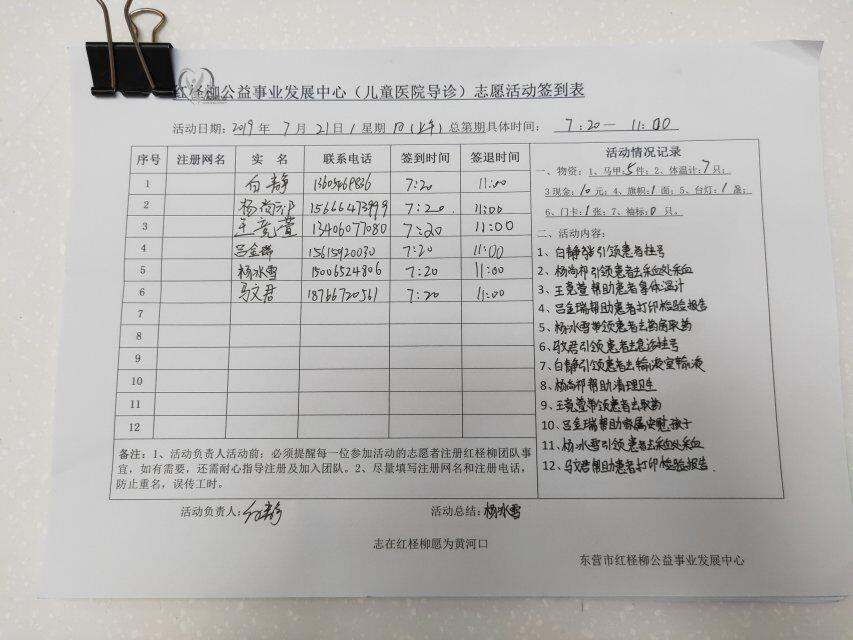 红柽柳公益事业发展中心（儿童医院导诊）志愿活动签到表
活动日期：2019年 7月 21日/星期日(上午)总第期具体时间： 7:20— 11:00
序号 注册网名 实 名 联系电话 签到时间 签退时间
1 白静 7:20 11:00
2 杨尚邦 15666473999 7:20 11:00
3 王亮萱 13406077080 7:20 11:00
4 吕金瑞 15615920030 7:20 11:00
5 杨冰雪 15006524806 7:20 11:00
6 马文君 18766720561 7:20 11:00
7
8
9
10
11
12
备注：1、活动负责人活动前：必须提醒每一位参加活动的志愿者注册红柽柳团队事
宜，如有需要，还需耐心指导注册及加入团队。2、尽量填写注册网名和注册电话，
防止重名，误传工时。
活动情况记录
一、物资：1、马甲:5件；2、体温计:7只；
3现金:10元；4、旗帜:1面；5、台灯:1盏；
6、门卡:1张；7、袖标:0只。
二、活动内容：
1、白静引领患者挂号
2、杨尚邦引领患者去采血处采血
3、王亮萱帮助患者拿体温计
4、吕金瑞帮助患者打印检验报告
5、杨冰雪带领患者去药房取药
6、马文君引领患者去急诊挂号
7、白静引领患者去输液室输液
8、杨尚邦帮助清理卫生
9、王亮萱带领患者去取药
10、吕金瑞帮助家属安慰孩子
11、杨冰雪引领患者去采血处采血
12、马文君帮助患者打印检验报告.
活动负责人: 白静 活动总结: 杨冰雪
志在红柽柳愿为黄河口
东营市红柽柳公益事业发展中心